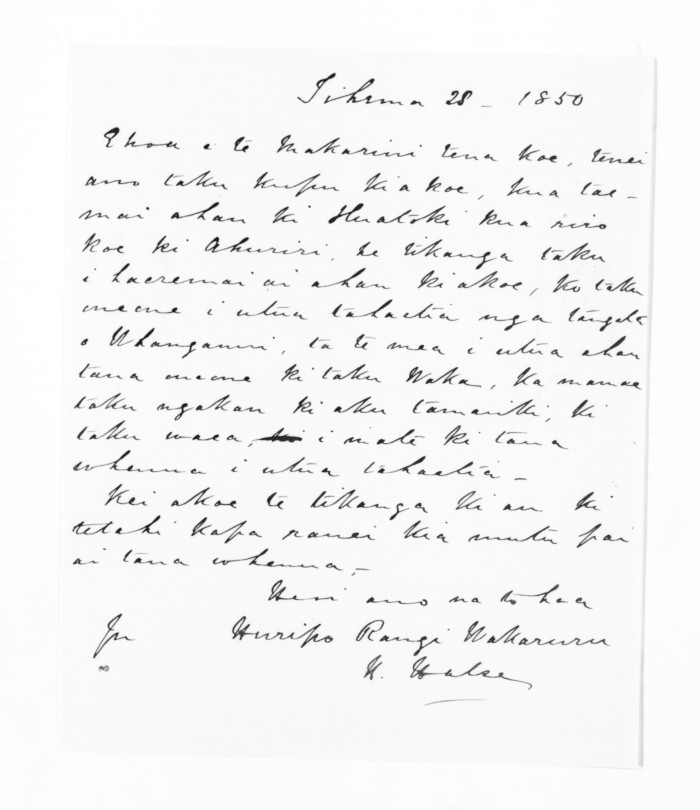 Tihema 28 - 1850
Ehoa e te Makarini tena koe, tenei
ano taku kupu kia koe, kua tae-
mai ahau ki Huatoki kua riro
koe ki Ahuriri, he tikanga taku
i haeremai ai ahau ki akoe, ko taku
oneone i utua tahaetia nga tangata
o Whanganui, ta te mea i utua ahau
tana oneone ki taku Waka, Ka mamae
taku ngakau ki aku tamariki, ki
taku waea, i mate ki tana
whenua i utua tahaetia -
Kei akoe te tikanga ki au ki
tetahi kapa ranei kia mutu pai
ai tana whenua, -
Heoi ano na to hoa
Huripo Rangi Wakaruru
H. Halse